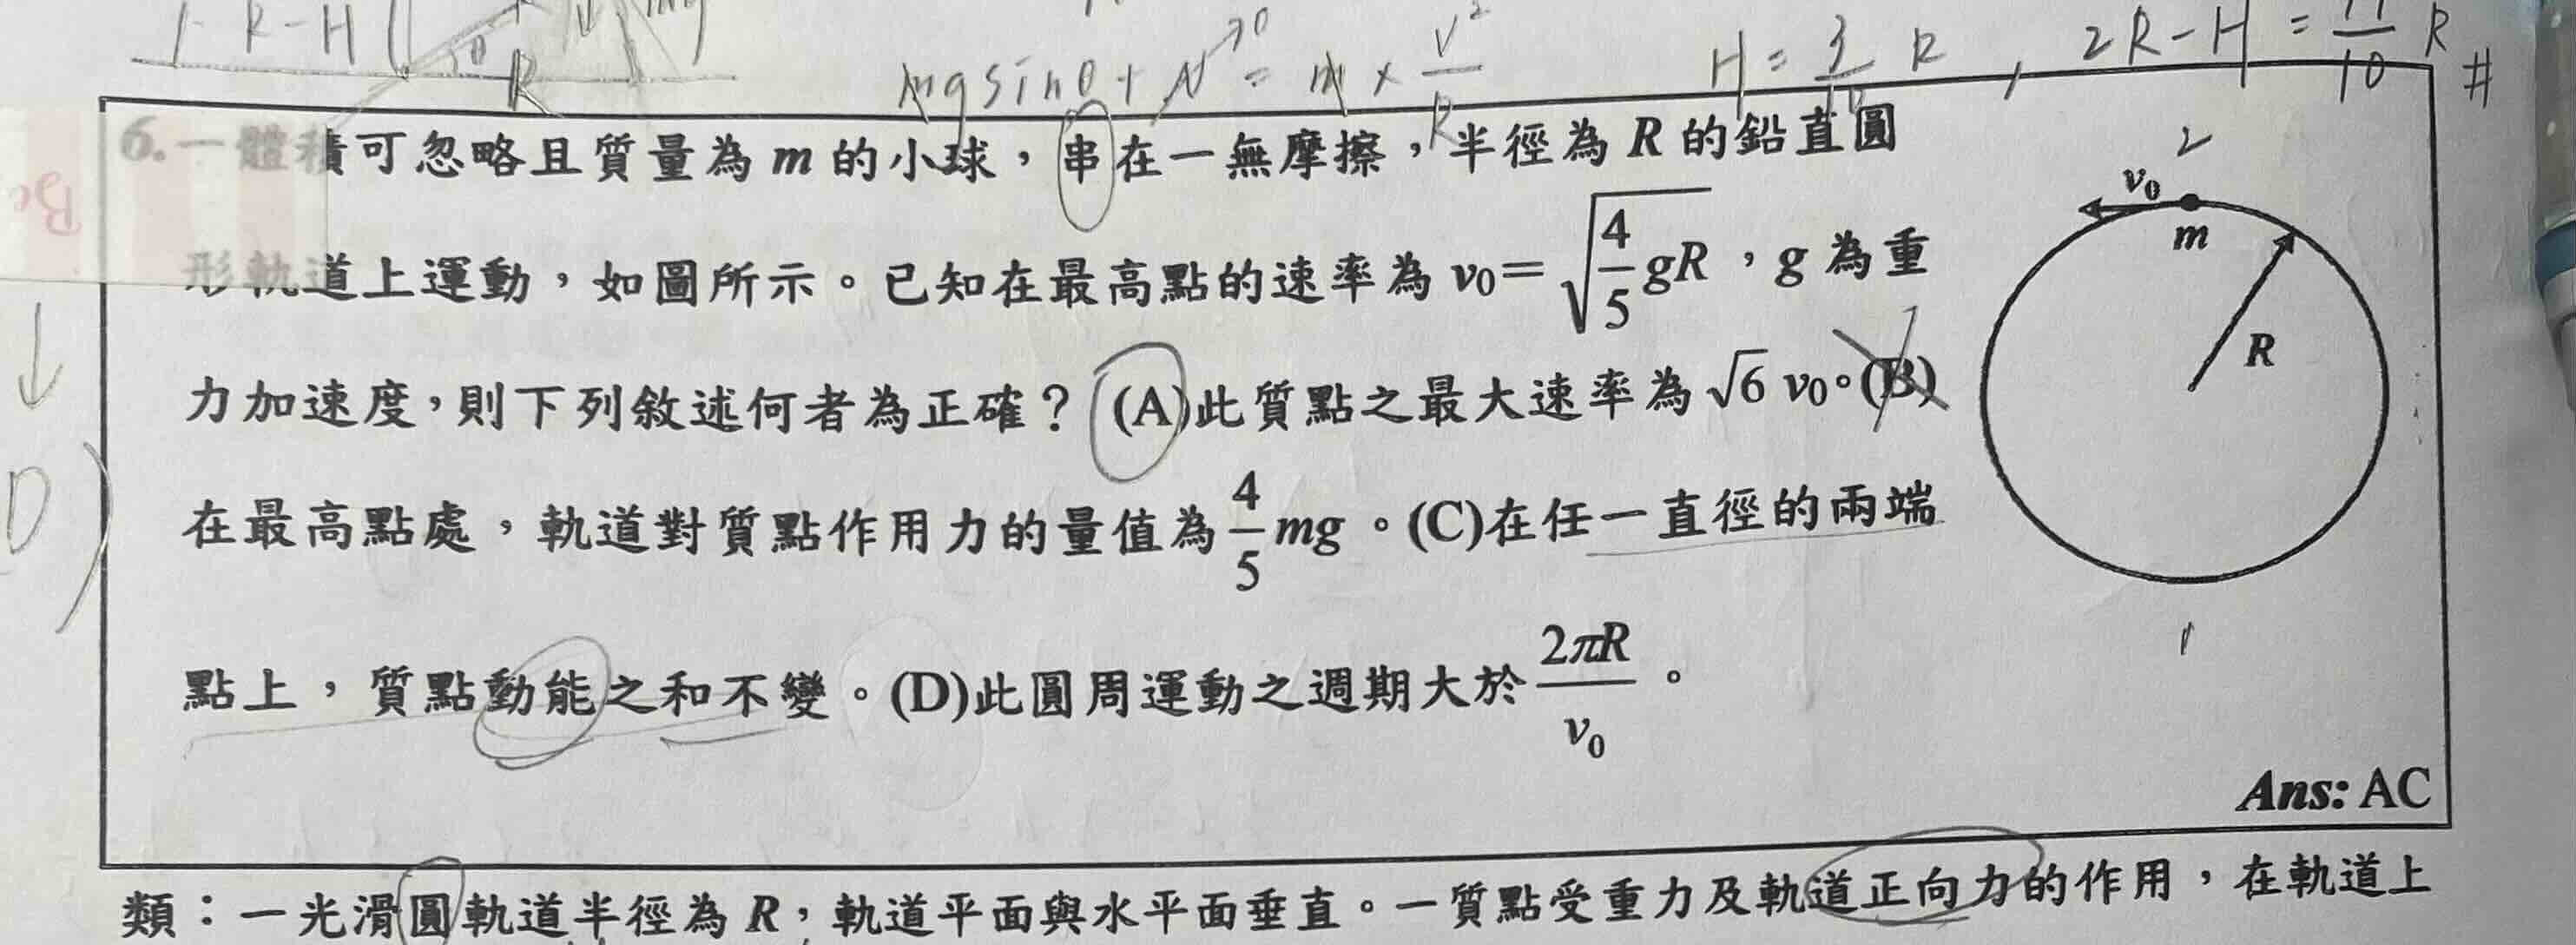 R-H
θ
R
mg sinθ + N→0 = m × v²/R
H = 3/10 R , 2R-H = 11/10 R #
6.一體積可忽略且質量為 m 的小球，串在一無摩擦，半徑為 R 的鉛直圓
形軌道上運動，如圖所示。已知在最高點的速率為 v₀=√(4/5 gR)，g 為重
力加速度，則下列敘述何者為正確？(A)此質點之最大速率為 √6 v₀。(B)
在最高點處，軌道對質點作用力的量值為 4/5 mg。(C)在任一直徑的兩端
點上，質點動能之和不變。(D)此圓周運動之週期大於 2πR/v₀。
Ans: AC
2
v₀
m
R
1
D)
類：一光滑圓軌道半徑為 R，軌道平面與水平面垂直。一質點受重力及軌道正向力的作用，在軌道上